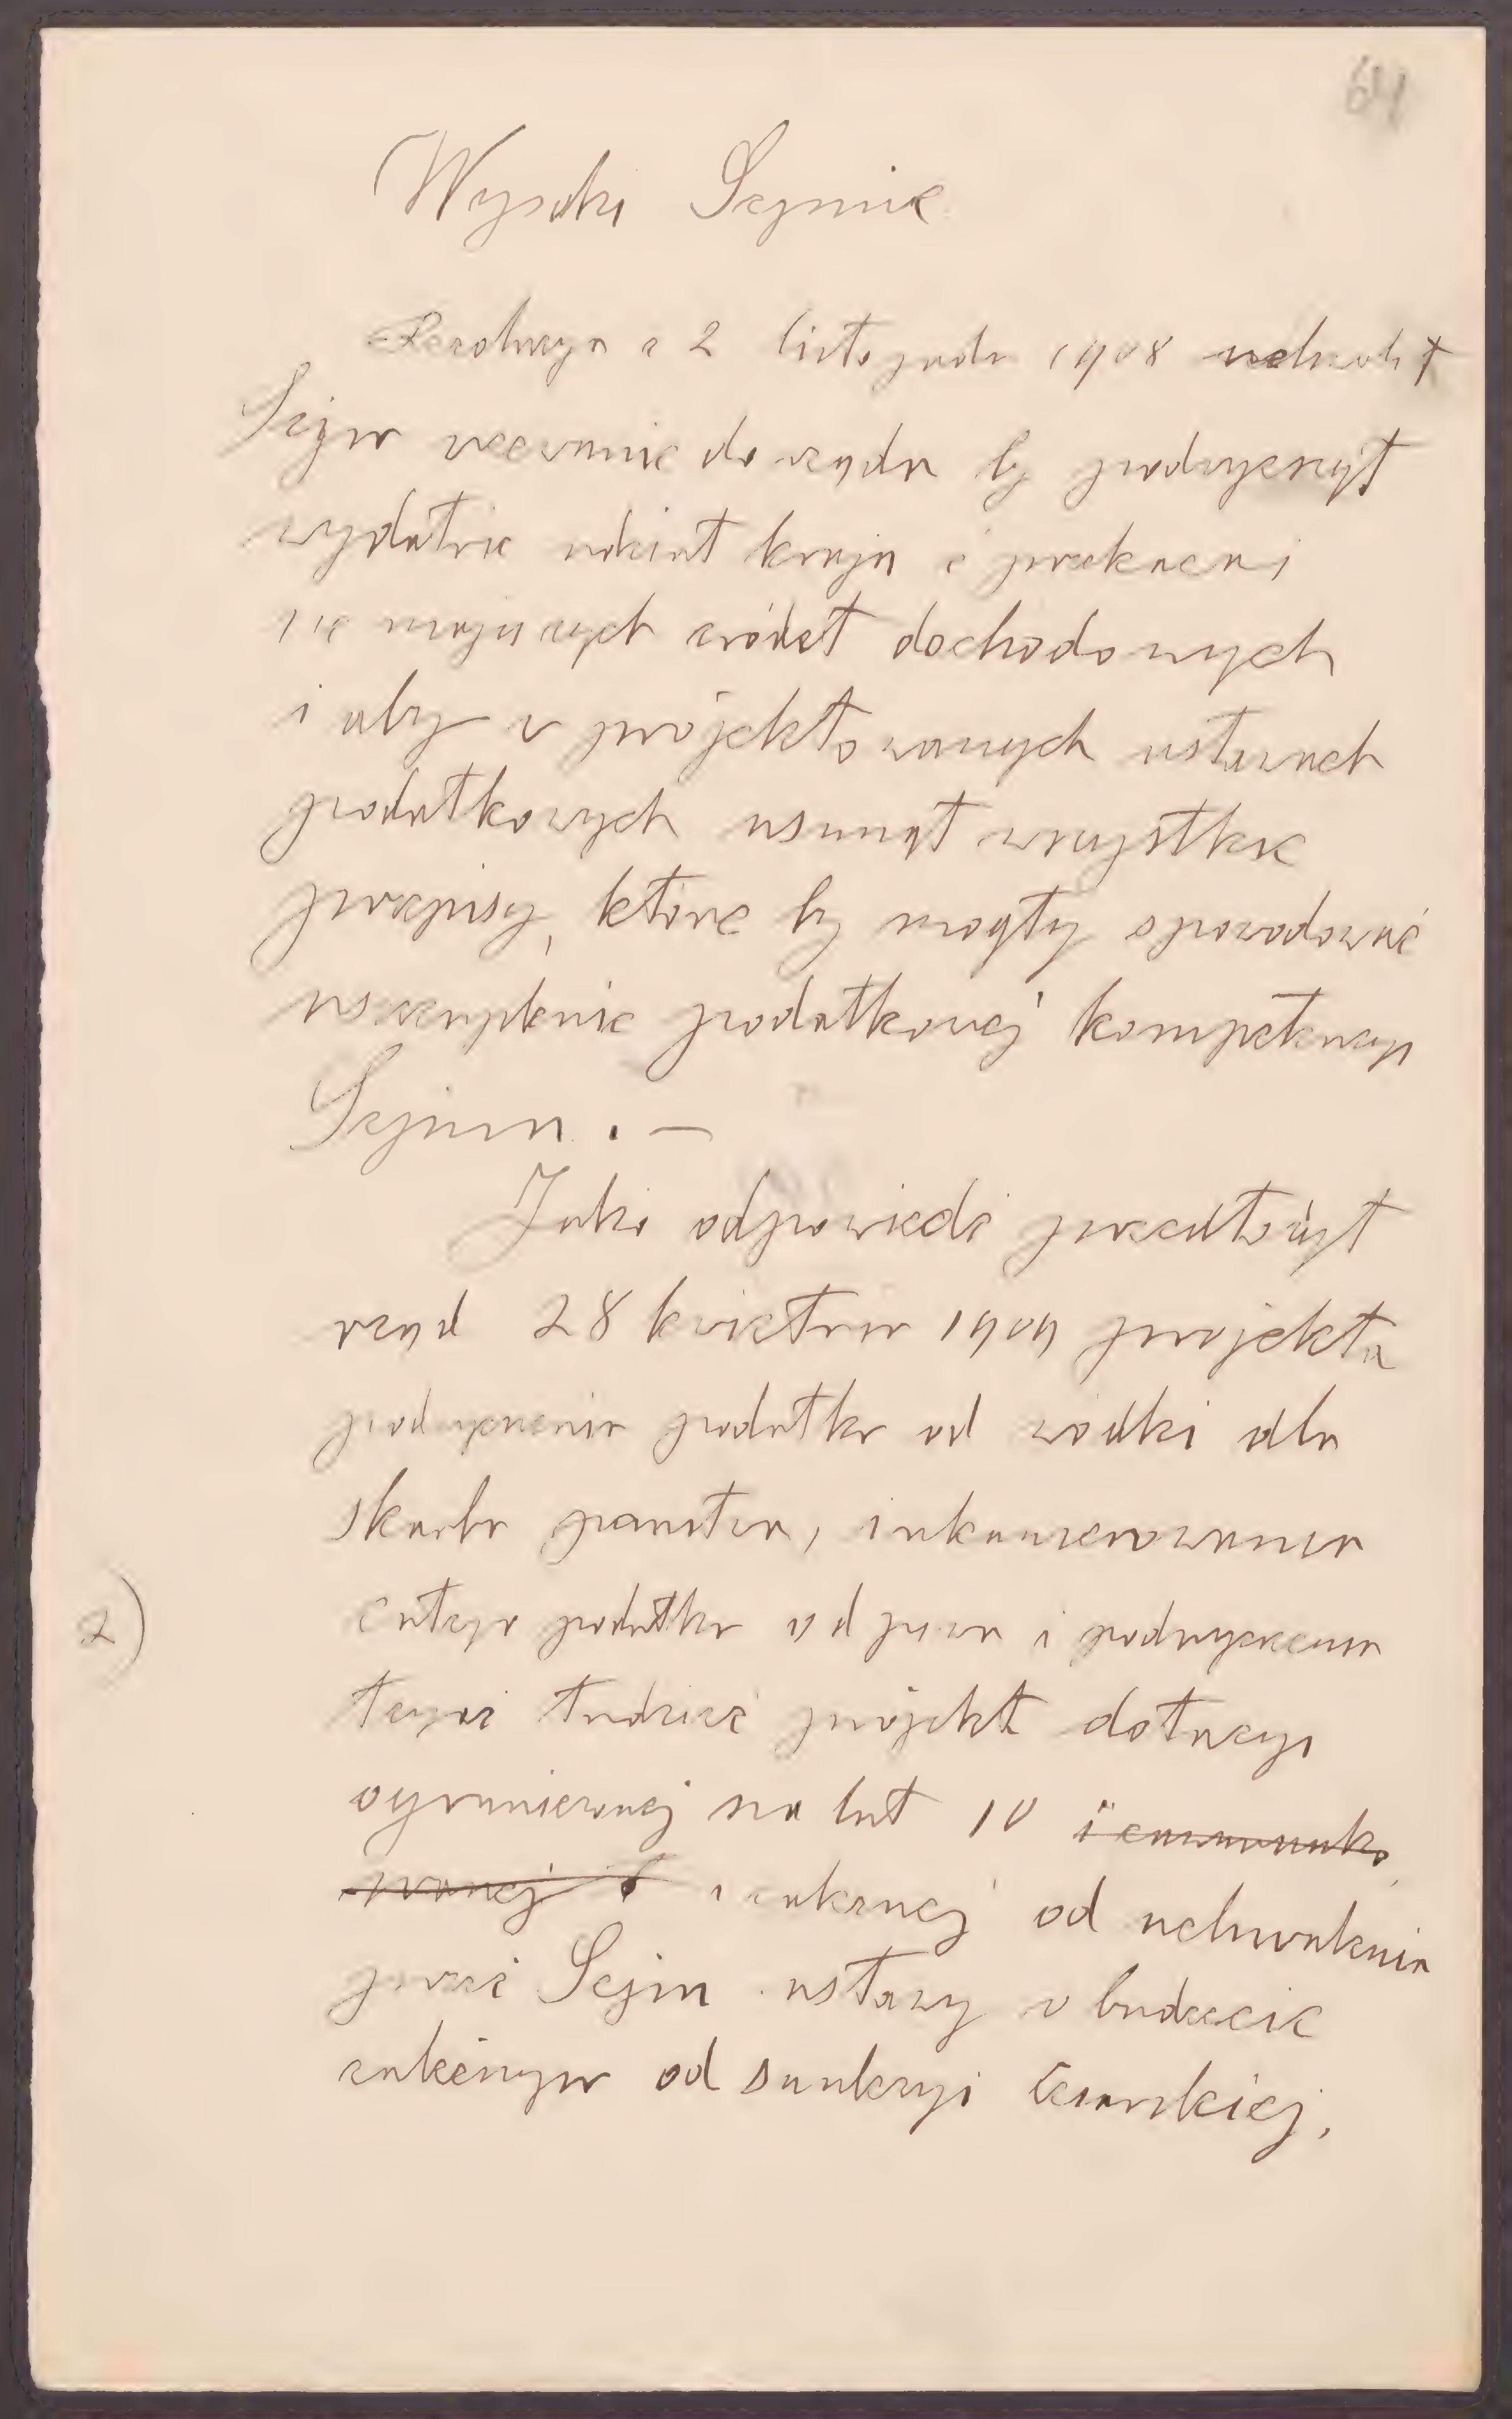 64
Wysoki Sejmie
Rezolucyą z 2 listopada 1908 uchwalił
Sejm wezwanie do rządu by podwyższył
wydatnie udział kraju z przekazać
się mających źródeł dochodowych
i aby w projektowanych ustawach
podatkowych usunął wszystkie
przepisy, które by mogły spowodować
uszczuplenie podatkowej kompetencyi
Sejmu. —
Jako odpowiedź przedłożył
rząd 28 kwietnia 1909 projekta
podwyższenia podatku od wódki dla
skarbu państwa, inkamerowania
całego podatku od piwa i podwyższenia
2)
tegoż tudzież projekt dotacyi
ograniczonej na lat 10
i zależnej od uchwalenia
przez Sejm ustawy o budżecie
zależnym od sankcyi Cesarskiej,